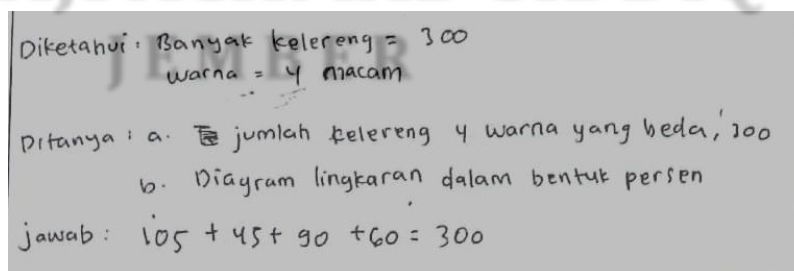 Diketahui : Banyak kelereng = 300
warna = 4 macam
JEMBER
Ditanya : a. jumlah kelereng 4 warna yang beda, 300
b. Diagram lingkaran dalam bentuk persen
jawab : 105 + 45 + 90 + 60 = 300